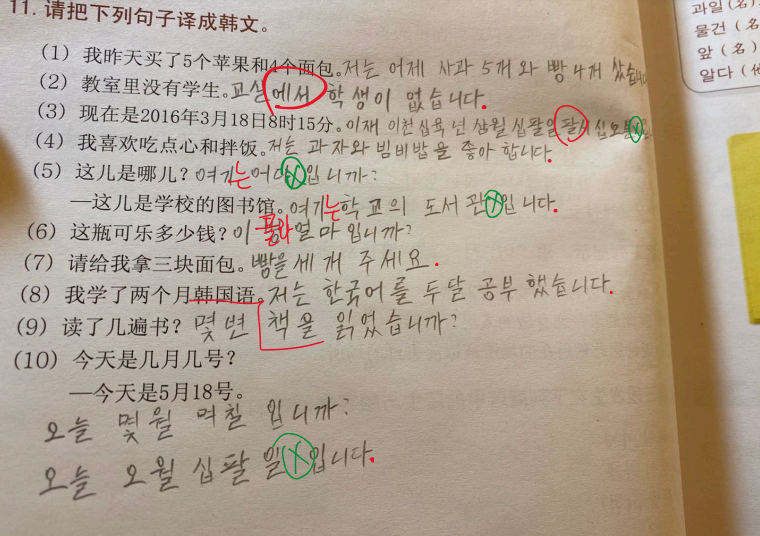 11. 请把下列句子译成韩文。
(1) 我昨天买了5个苹果和4个面包。저는 어제 사과 5개와 빵 4개 샀습니다
(2) 教室里没有学生。교실에서 학생이 없습니다.
(3) 现在是2016年3月18日8时15分。이재 이천십육년 삼월 십팔일 팔시 십오분
(4) 我喜欢吃点心和拌饭。저는 과자와 빔비밥을 좋아합니다.
(5) 这儿是哪儿? 여기는 어디입니까?
—这儿是学校的图书馆。여기는 학교의 도서관입니다.
(6) 这瓶可乐多少钱? 이 얼마입니까?
(7) 请给我拿三块面包。빵을 세개 주세요.
(8) 我学了两个月韩国语。저는 한국어를 두달 공부했습니다.
(9) 读了几遍书? 몇변 책을 읽었습니까?
(10) 今天是几月几号?
—今天是5月18号。
오늘 몇월 며칠 입니까?
오늘 오월 십팔일입니다.
过일(名)
物건(名)
앞(名)
알다(他